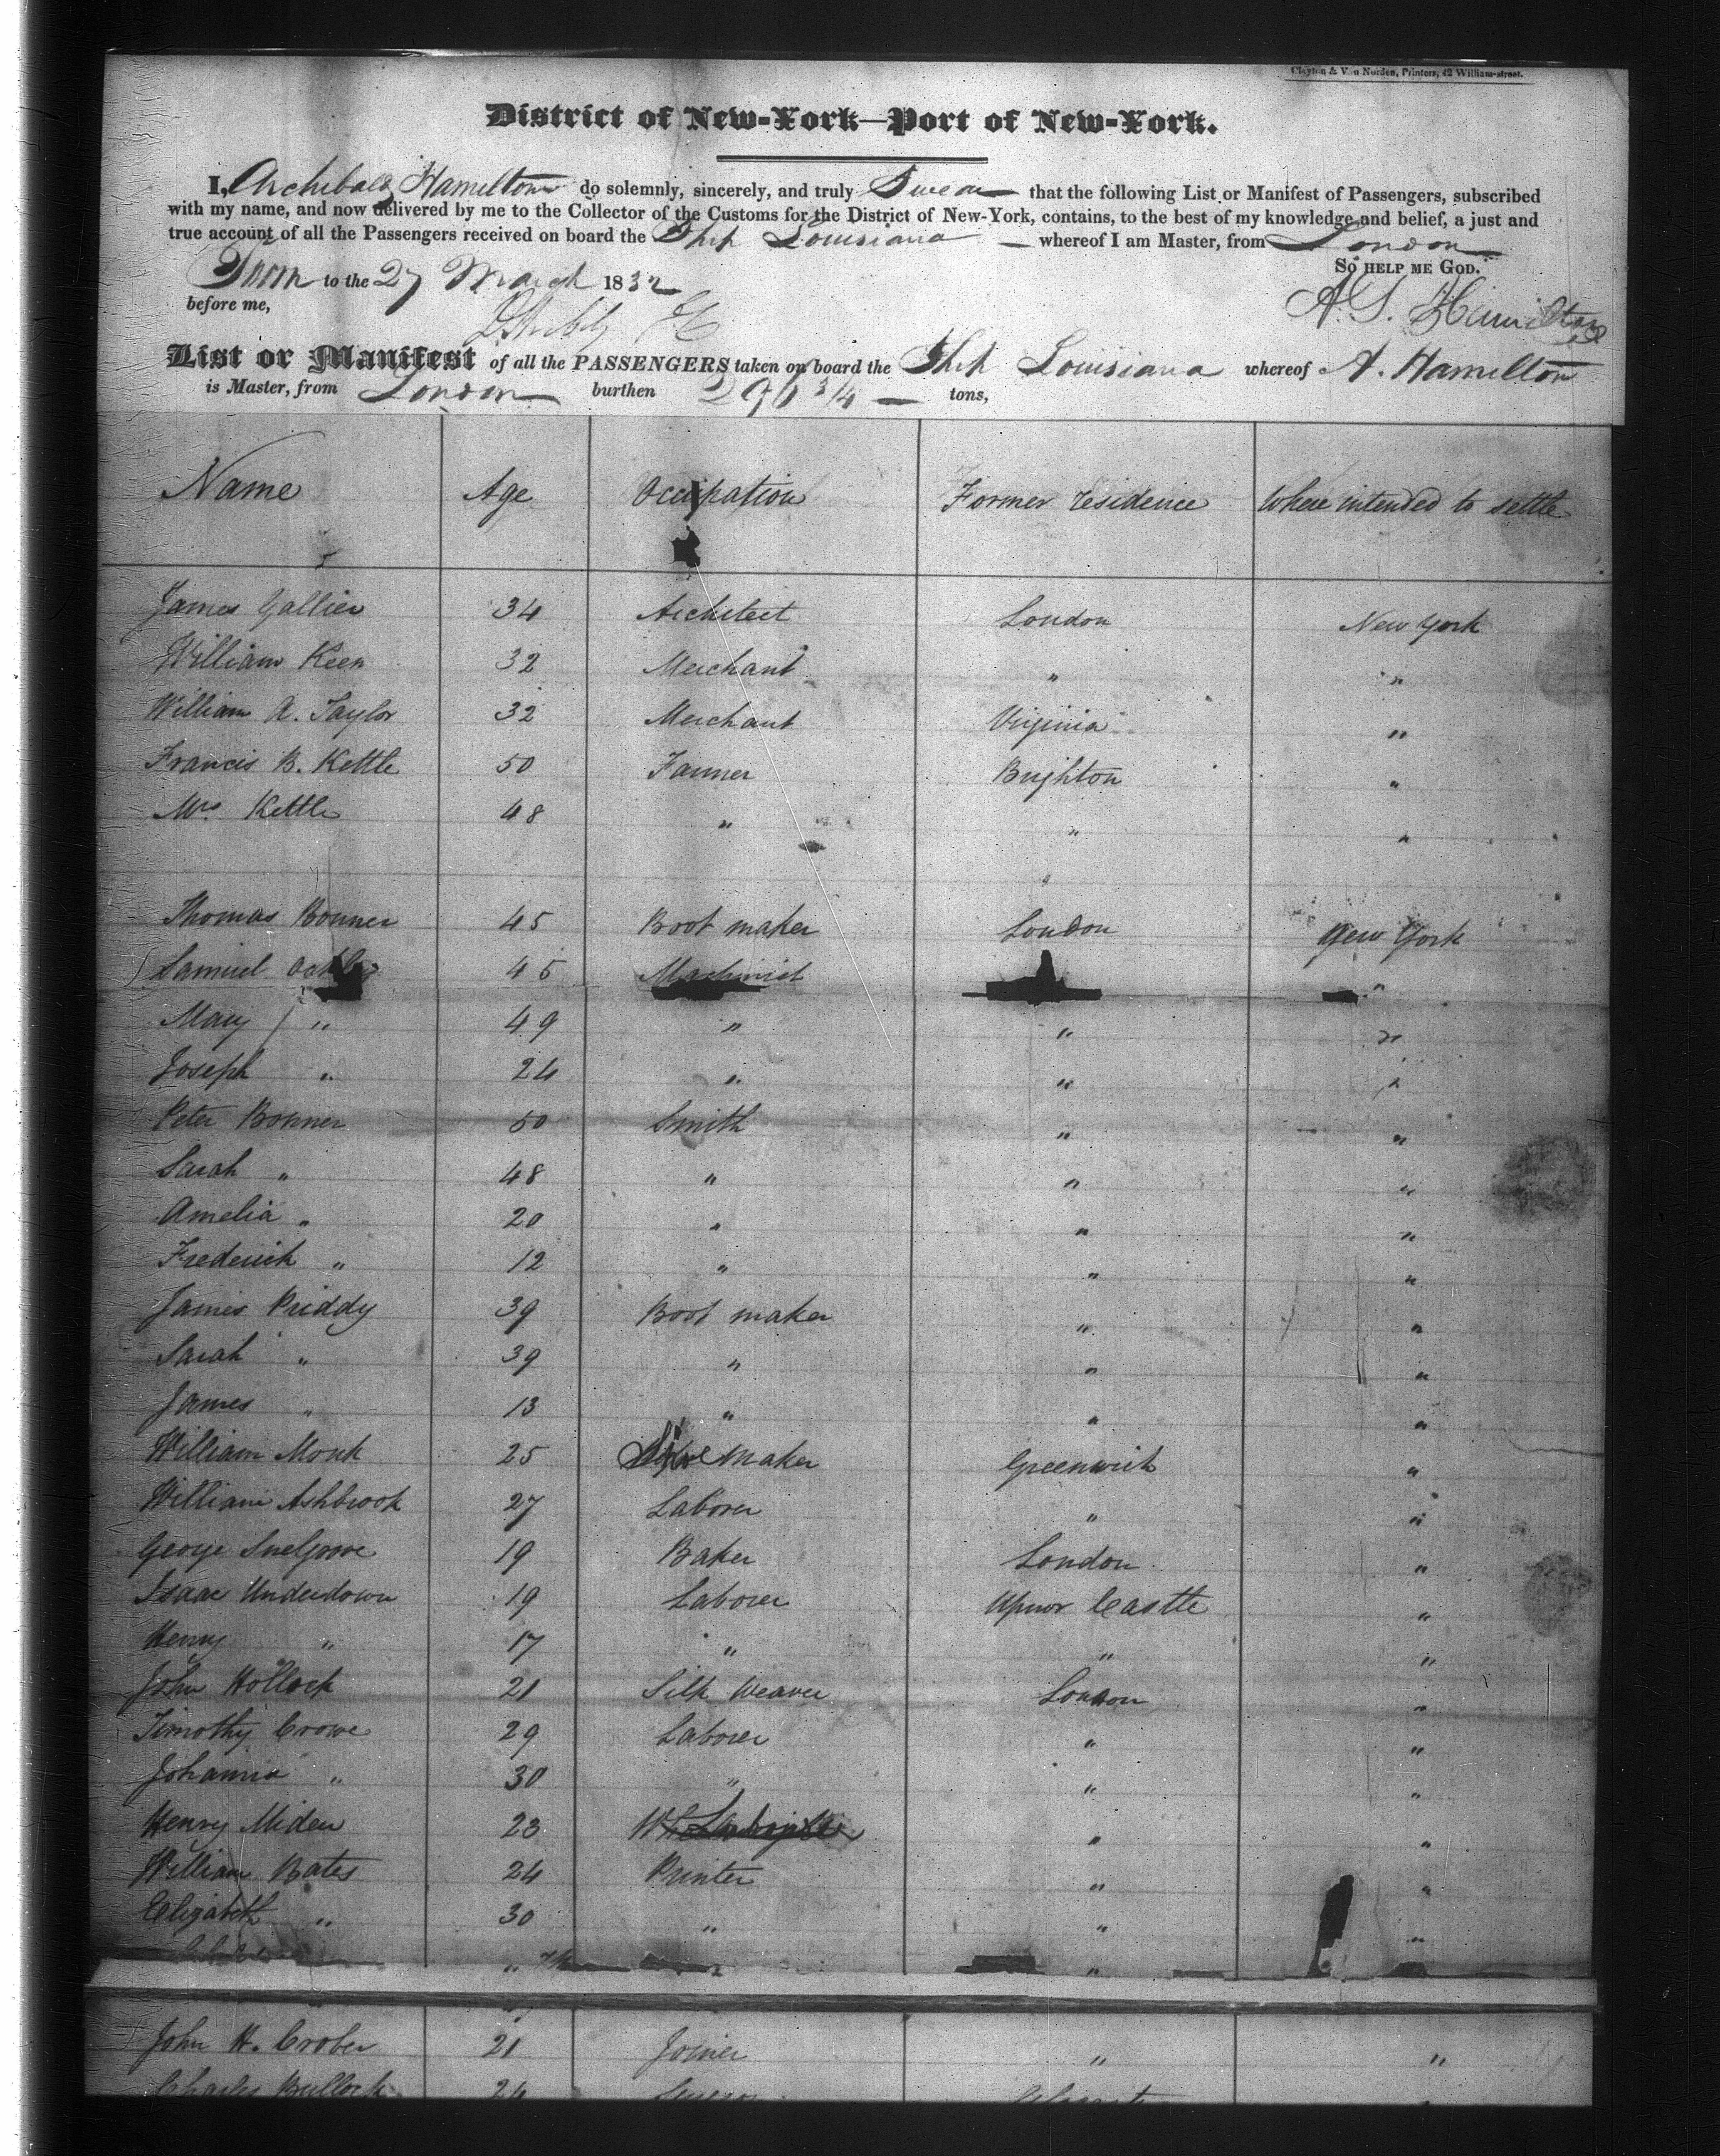 Clayton & Van Norden, Printers, 42 William-street.
District of New-York—Port of New-York.
I, Archibald Hamilton do solemnly, sincerely, and truly Swear that the following List or Manifest of Passengers, subscribed
with my name, and now delivered by me to the Collector of the Customs for the District of New-York, contains, to the best of my knowledge and belief, a just and
true account of all the Passengers received on board the Ship Louisiana — whereof I am Master, from London
So HELP ME GOD.
Sworn to the 27 March 1832
before me,
A. S. Hamilton
List or Manifest of all the PASSENGERS taken on board the Ship Louisiana whereof A. Hamilton
is Master, from London burthen 296 3/4 — tons,
Name Age Occupation Former residence Where intended to settle
James Gallier 34 Architect London New York
William Keen 32 Merchant " "
William A. Taylor 32 Merchant Virginia "
Francis B. Kettle 50 Farmer Brighton "
Mrs Kettle 48 " " "
Thomas Bonner 45 Boot maker London New York
Samuel 45 Machinist "
Mary " 49 " " "
Joseph " 24 " " "
Peter Bonner 50 Smith " "
Sarah " 48 " " "
Amelia " 20 " " "
Frederick " 12 " " "
James Priddy 39 Boot maker " "
Sarah " 39 " " "
James " 13 " " "
William Monk 25 Shoe maker Greenwich "
William Ashbrook 27 Laborer " "
George Snelgrove 19 Baker London "
Isaac Underdown 19 Laborer Upnor Castle "
Henry " 17 " " "
John Hollock 21 Silk Weaver London "
Timothy Crowe 29 Laborer " "
Johanna " 30 " " "
Henry Miden 23 " "
William Bates 24 Printer " "
Elizabeth " 30 " " "
" "
John H. Crober 21 Joiner " "
Charles Bullock 24